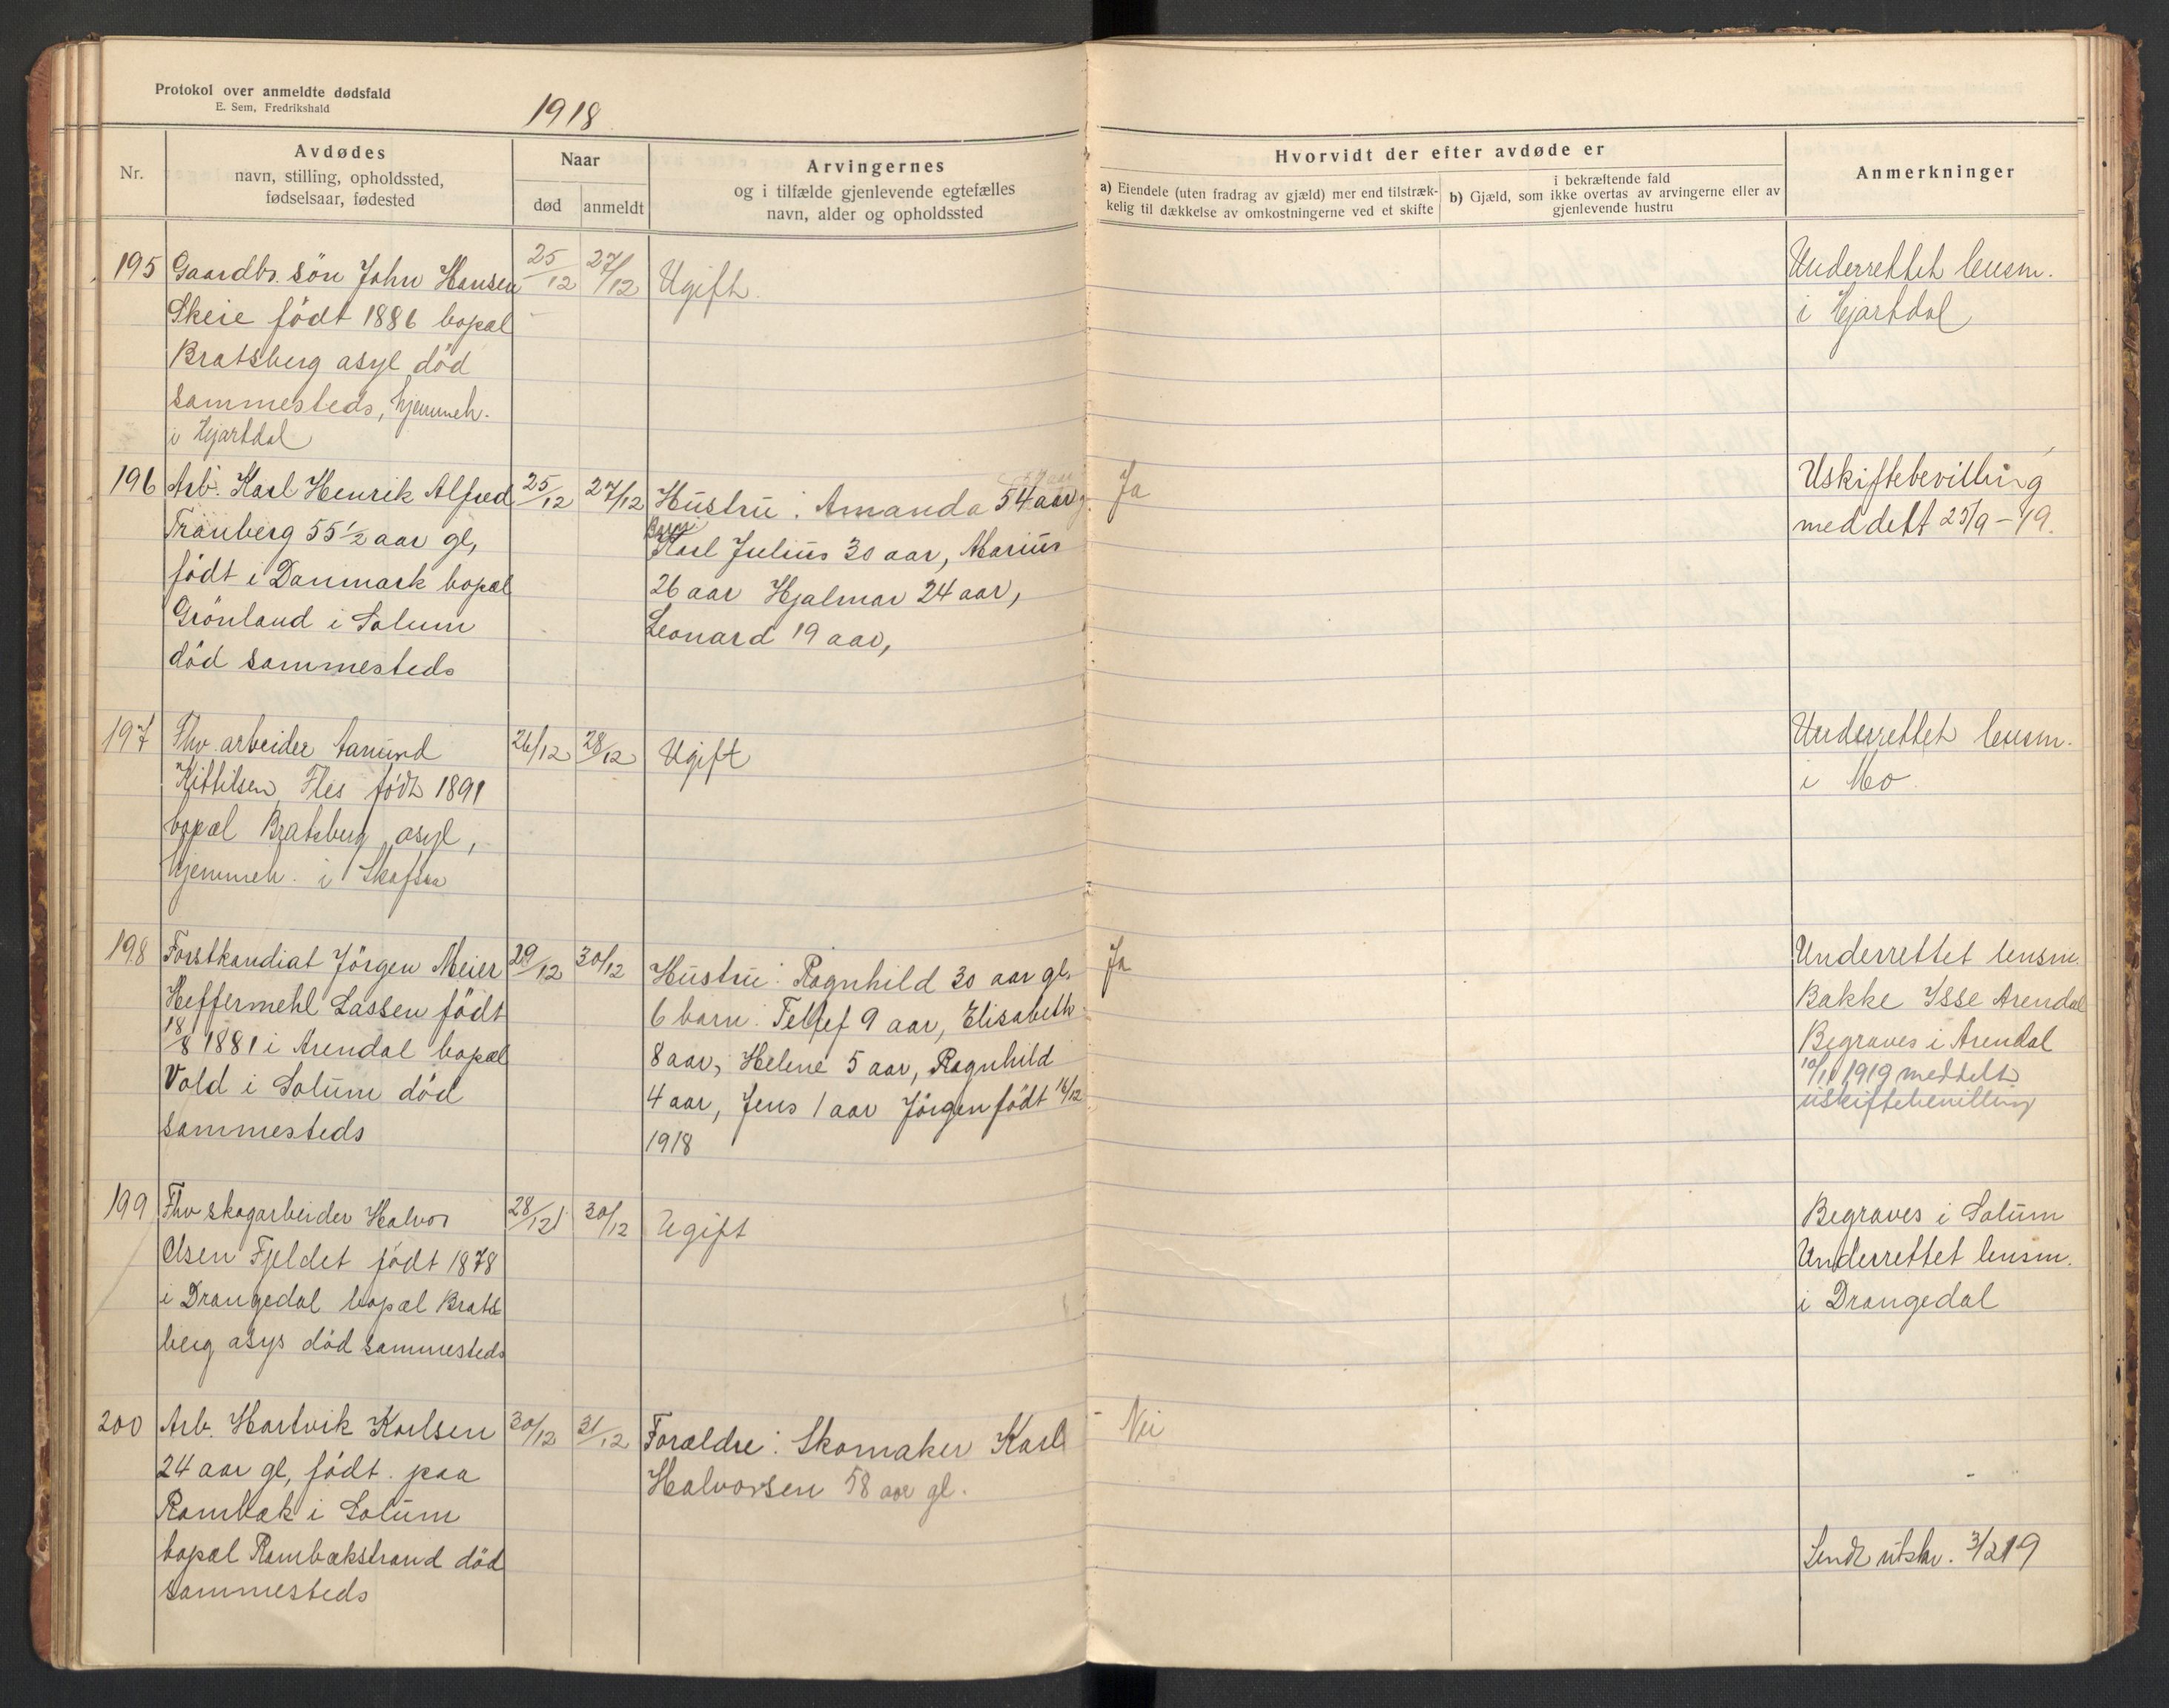 Protokol over anmeldte dødsfald
E. Sem, Fredrikshald
1918
Nr.
Avdødes
navn, stilling, opholdssted,
fødselsaar, fødested
Naar
død
anmeldt
Arvingernes
og i tilfælde gjenlevende egtefælles
navn, alder og opholdssted
Hvorvidt der efter avdøde er
a) Eiendele (uten fradrag av gjæld) mer end tilstræk-
kelig til dækkelse av omkostningerne ved et skifte
i bekræftende fald
b) Gjæld, som ikke overtas av arvingerne eller av
gjenlevende hustru
Anmerkninger
195
Gaardbr. søn John Hansen
Skeie født 1886 bopæl
Bratsberg asyl død
sammesteds, hjemmeh.
i Hjartdal
25/12
27/12
Ugift.
Underrettet lensm.
i Hjartdal
196
Arb. Karl Henrik Alfred
Tranberg 55 1/2 aar gl,
født i Danmark bopæl
Grönland i Solum
död sammesteds
25/12
27/12
Hustru: Amanda 54 aar
Børn:
Karl Julius 30 aar, Marius
26 aar Hjalmar 24 aar,
Leonard 19 aar,
Ja
Uskiftebevilling
meddelt 25/9-19.
197
Fhv. arbeider Aamund
Kittilsen Fles født 1891
bopæl Bratsberg asyl,
hjemmeh. i Skafsaa
26/12
28/12
Ugift
Underrettet lensm.
i Mo
198
Forstkandiat Jörgen Meier
Heffermehl Lassen født
18/8 1881 i Arendal bopæl
Vold i Solum död
sammesteds
29/12
30/12
Hustru: Ragnhild 30 aar gl.
6 barn: Tellef 9 aar, Elisabeth
8 aar, Helene 5 aar, Ragnhild
4 aar, Jens 1 aar Jörgen født 16/12
1918
Ja
Underrettet lensm.
Bakke Isse Arendal
Begraves i Arendal
10/11 1919 meddelt
uskiftebevilling
199
Fhv skogarbeider Halvor
Olsen Fjeldet født 1878
i Drangedal bopæl Brats
berg asys död sammesteds
28/12
30/12
Ugift
Begraves i Solum
Underrettet lensm.
i Drangedal
200
Arb. Hartvik Karlsen
24 aar gl, født paa
Rambæk i Solum
bopæl Rambækstrand död
sammesteds
30/12
31/12
Forældre: Skomaker Karl
Halvorsen 58 aar gl.
Nei
Sendt utskr. 3/2 19